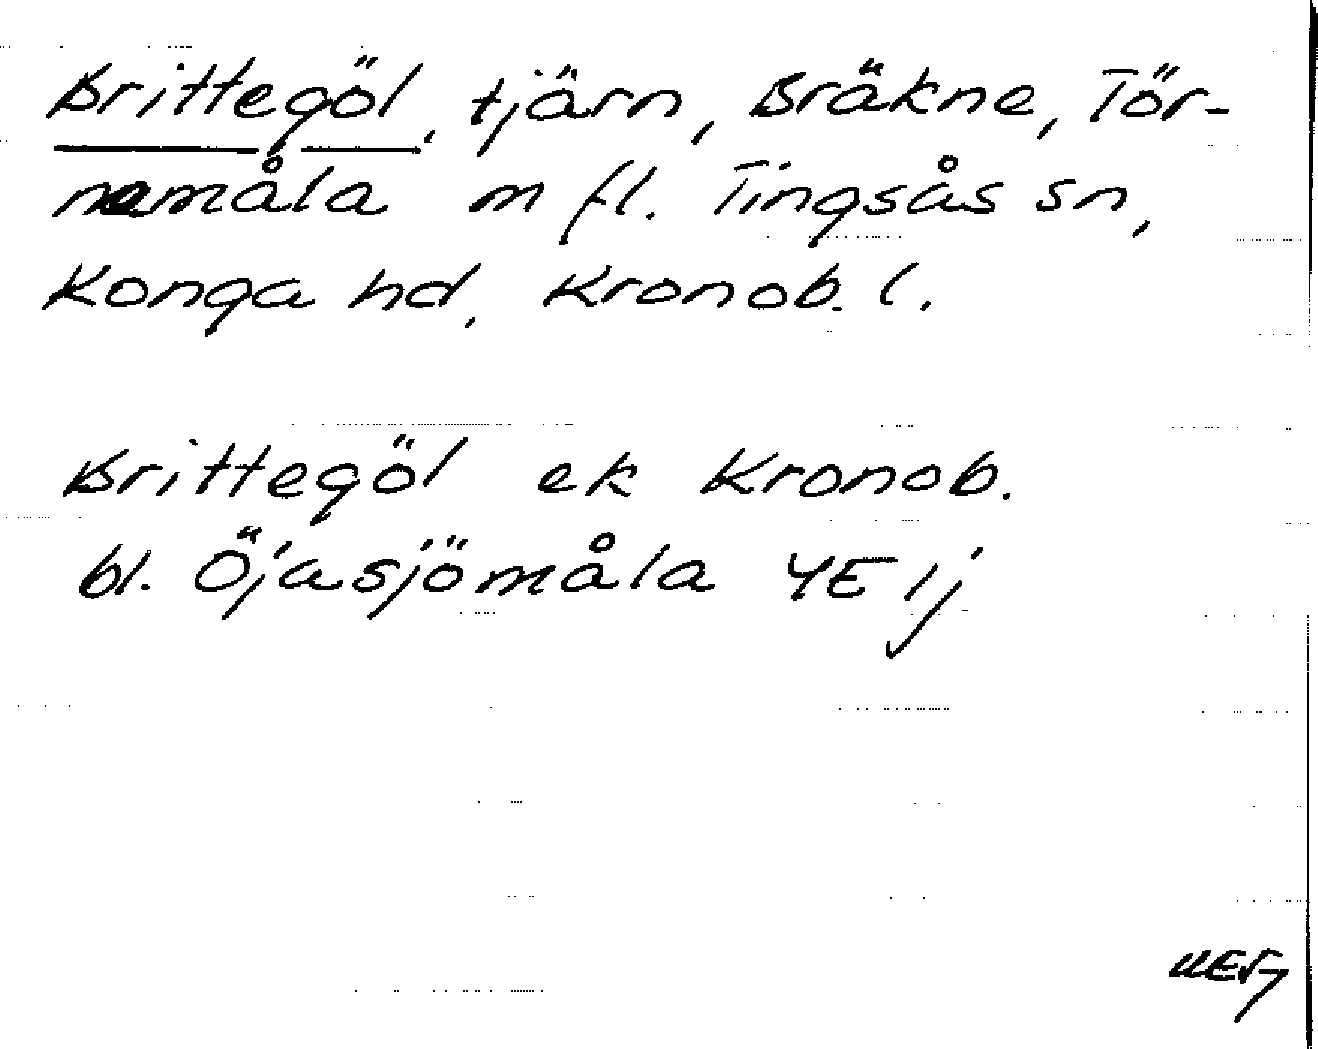 Brittegöl, tjärn, Bräkne, Tör-
nemåla m fl. Tingsås sn,
Konga hd, Kronob. l.
Brittegöl ek Kronob.
bl. Öjasjömåla 4E 1j